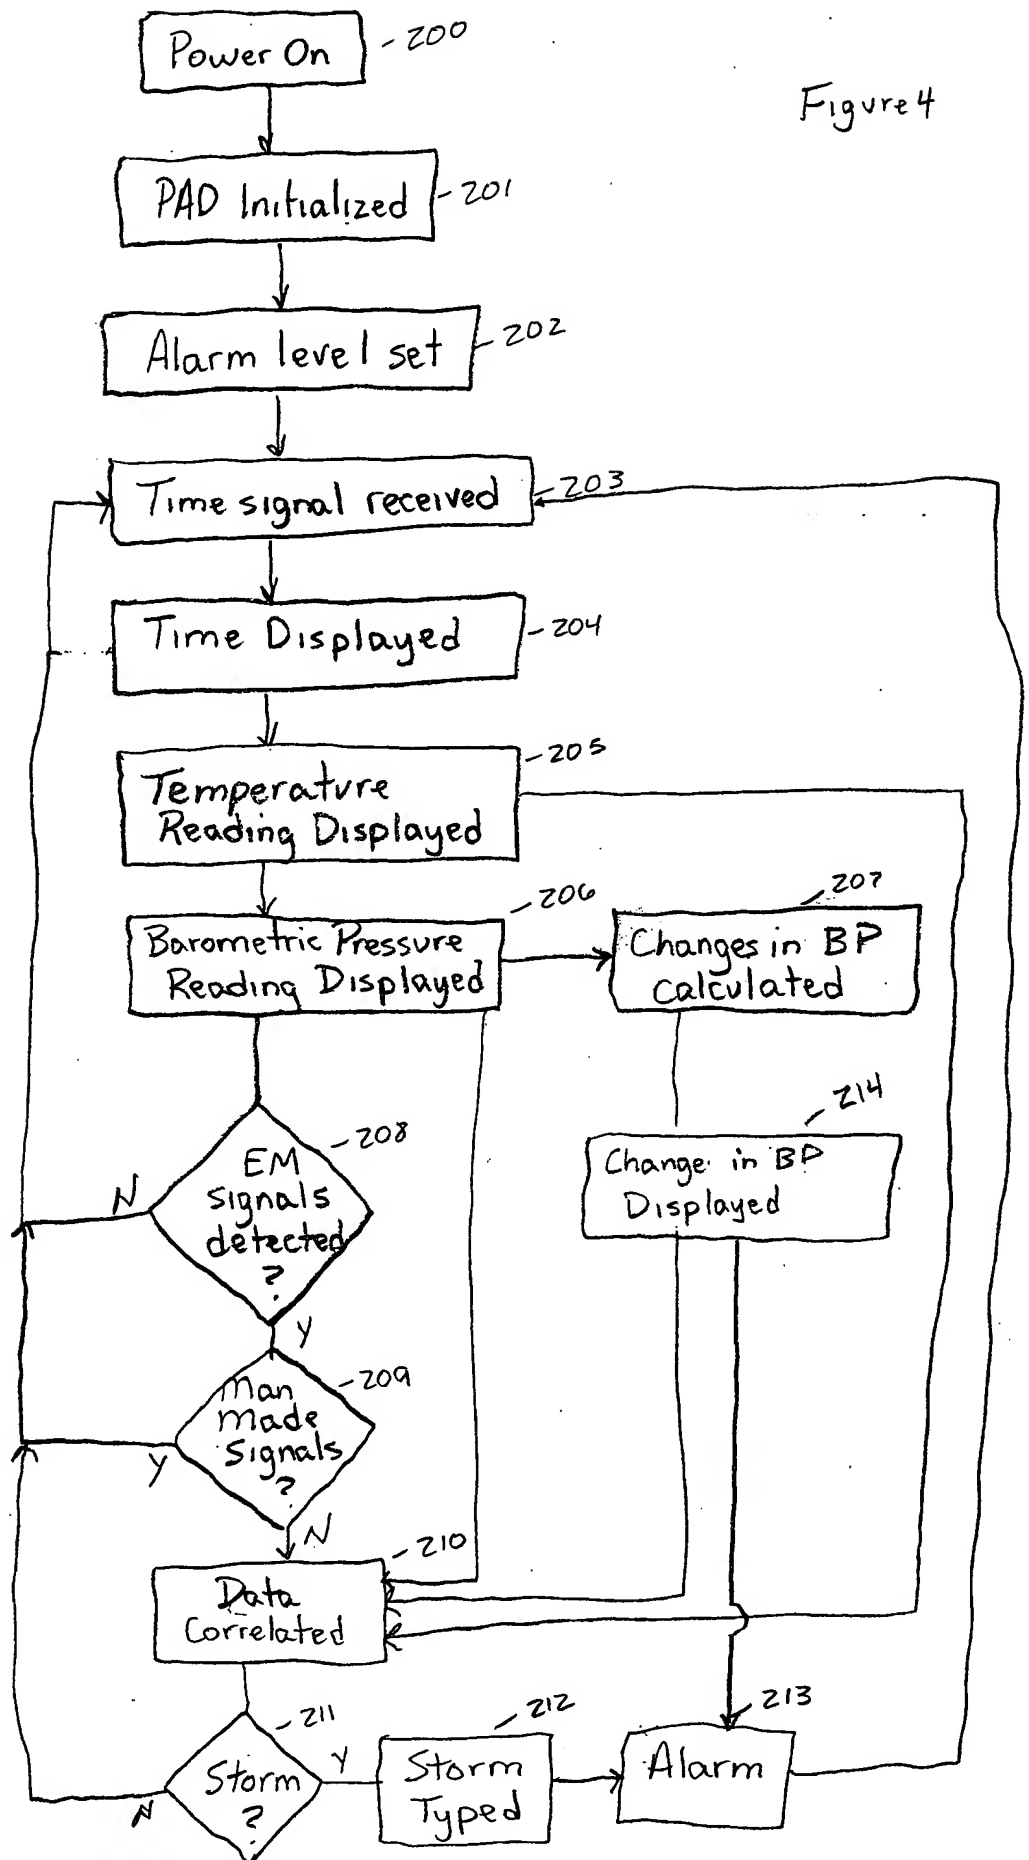 Power On
200
Figure 4
PAD Initialized
201
Alarm level set
202
Time signal received
203
Time Displayed
204
Temperature
Reading Displayed
205
Barometric Pressure
Reading Displayed
206
Changes in BP
calculated
207
EM
signals
detected
?
208
N
Y
Change in BP
Displayed
214
Man
Made
Signals
?
209
Y
N
Data
Correlated
210
Storm
?
211
N
Y
Storm
Typed
212
Alarm
213